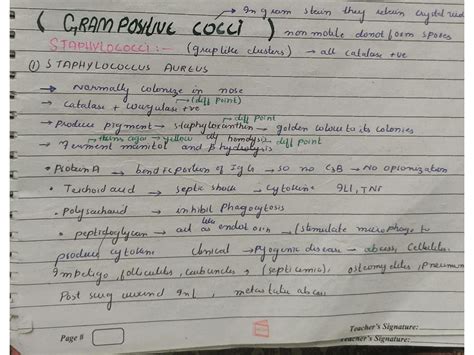 → In gram stain they retain crystal viol
( GRAM POSITIVE COCCI ) non motile donot form spores
STAPHYLOCOCCI :- (grap like clusters) → all catalase +ve
① STAPHYLOCOCCUS AUREUS
→ Normally colonize in nose
→ catalase + coagulase +ve → (diff point)
→ produce pigment → staphyloxanthin → diff point golden colour to its colonies
→ ferment manitol and β hydrolysis → yellow diff point
• Protein A → bend Fc portion of IgG → so no C3B → No opsonization
• Teichoid acid → septic shock → cytokine IL1, TNF
• Polysaccharid → inhibit Phagocytosis
• peptidoglycan → act as like endotoxin → (stimulate macrophage to
produce cytokine clinical → Pyogenic disease → abscess, Cellulitis
Impetigo, folliculitis, carbuncles, (septicemia), osteomyelitis, Pneumon
Post surg wound Inf, metastatic abscess
Page #
Teacher's Signature:
Teacher's Signature: